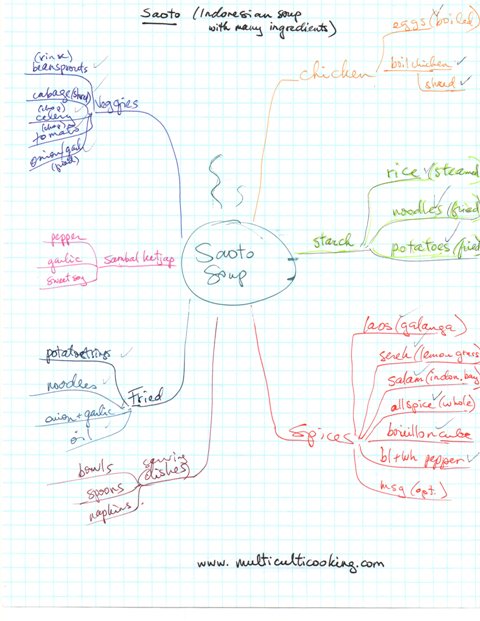 Saoto (Indonesian soup
with many ingredients)
eggs (boiled)
chicken
boil chicken
shred
(rinse)
beansprouts
cabage (shred)
(chop)
celery
(chop)
tomato
onion/garl
(fried)
Veggies
rice (steamed
noodles (fried)
potatoes (fried
starch
Saoto
Soup
pepper
garlic
sweet soy
Sambal ketjap
laos (galanga)
sereh (lemon grass
salam (indon. bay)
all spice (whole)
bouillon cube
bl+wh pepper
msg (opt.)
Spices
potatostrings
noodles
onion + garlic
oil
Fried
bowls
spoons
napkins.
serving
dishes
www.multiculticooking.com